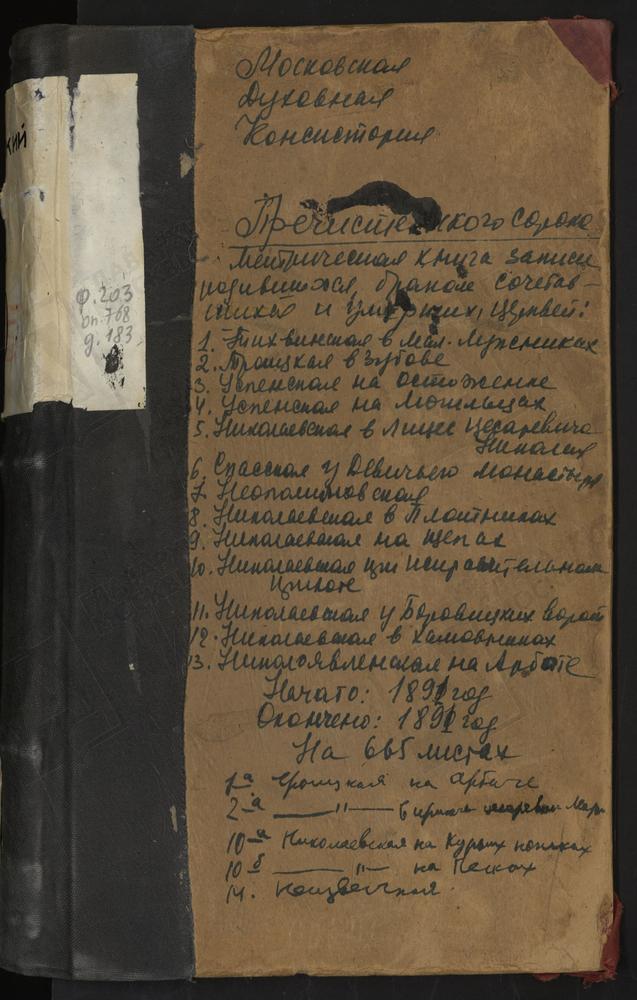 кий
ф. 203
оп. 768
д. 183
Московская
Духовная
Консистория
Пречистенского сорока
Метрическая книга записи
родившихся, браком сочетав-
шихся и умерших, церквей:
1. Тихвинская в Мал. Лужниках
2. Троицкая в Зубове
3. Успенская на Остоженке
4. Успенская на Могильцах
5. Николаевская в Лицее Цесаревича
Николая
6. Спасская у Девичьего монастыря
7. Неопалимовская
8. Николаевская в Плотниках
9. Николаевская на Щепах
10. Николаевская при Исправительном
приюте
11. Николаевская у Боровицких ворот
12. Николаевская в Хамовниках
13. Николоявленская на Арбате
Начато: 1891 год
Окончено: 1891 год
На 665 листах
1-а Троицкая на Арбате
2-а — " —
10-а Николаевская на Курьих ножках
10 б — " — на Песках
14. Неизвестная